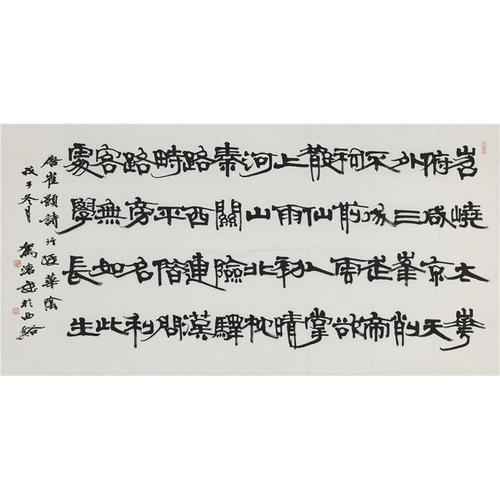 岧嶢太華
俯咸京天
外三峯削
不成武帝
祠前雲欲
散仙人掌
上雨初晴
河山北枕
秦關險驛
路西連漢
畤平借問
路旁名利
客無如此
處學長生
唐崔顥詩行經華陰
戊子冬月
於西谿